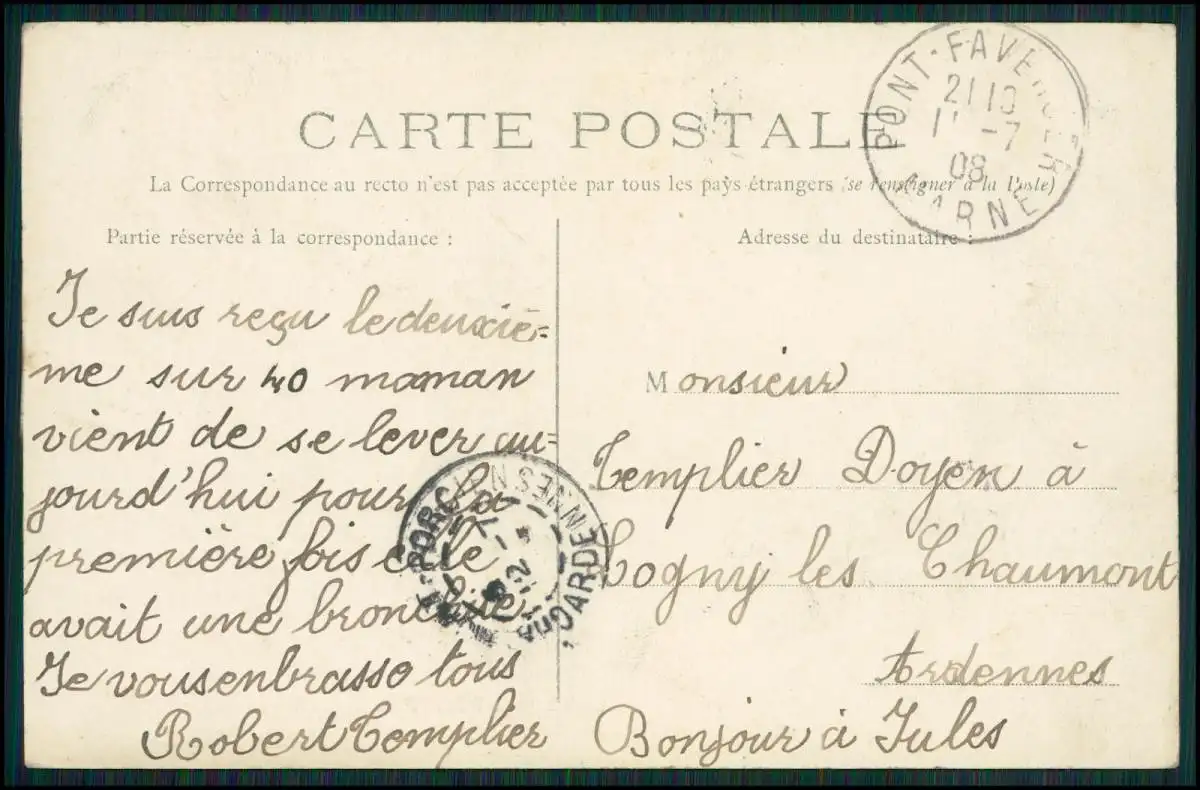 CARTE POSTALE
La Correspondance au recto n'est pas acceptée par tous les pays étrangers (se renseigner à la Poste)
Partie réservée à la correspondance :
Adresse du destinataire :
PONT-FAVERGER
21 10
11 -7
08
MARNE
Je suis reçu le deuxiè=
me sur 40 maman
vient de se lever au=
jourd'hui pour la
première fois elle
avait une bronchite
Je vous enbrasse tous
Robert Templier
Monsieur
Templier Doyen à
Logny les Chaumont
Ardennes
Bonjour à Jules
PORCIEN
ARDENNES